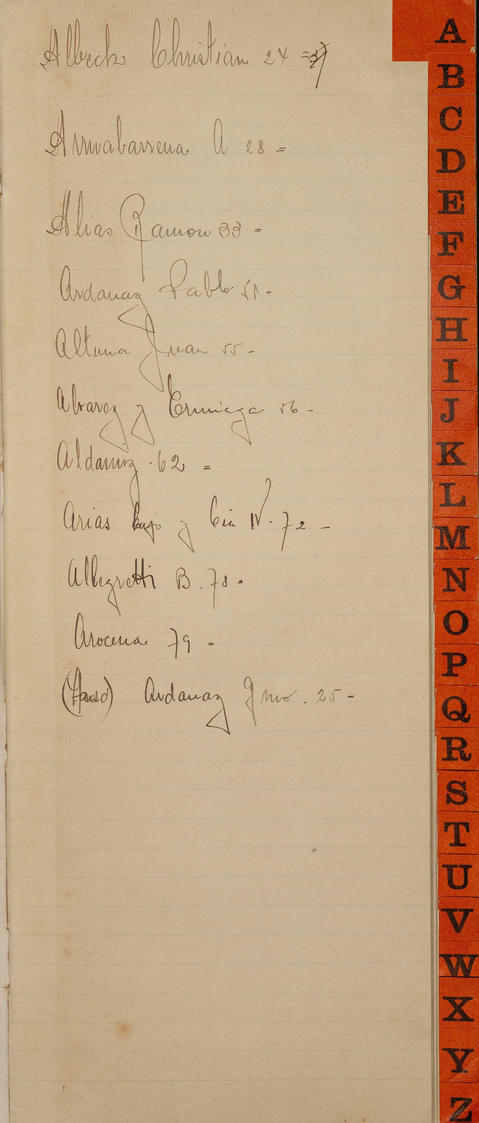 Albeck Christian 24 =
Arruabarrena A 28 =
Alias Ramon 33 =
Ardanaz Pablo 51 -
Altuna Juan 55 -
Alvarez y Erniaga 56 -
Aldaniz 62 =
Arias hijo y Cia N. 72 -
Allegretti B. 78 -
Arocena 79 -
Ardanaz Jno. 25 -
A
B
C
D
E
F
G
H
I
J
K
L
M
N
O
P
Q
R
S
T
U
V
W
X
Y
Z